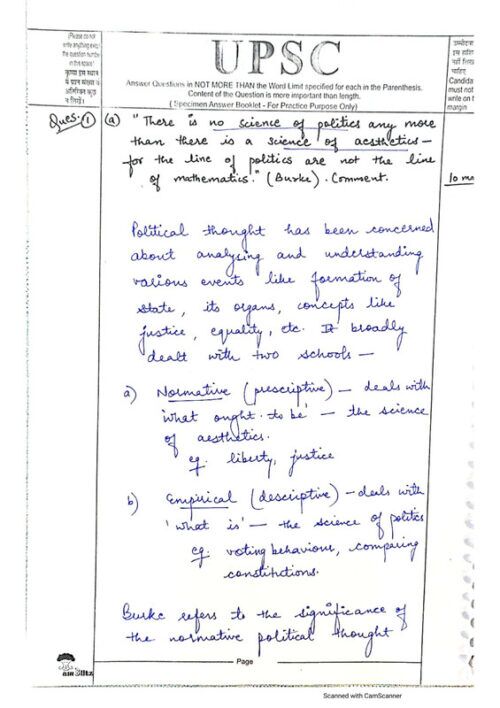 (Please do not
write anything except
the question number
in this space)
कृपया इस स्थान
में प्रश्न संख्या के
अतिरिक्त कुछ
न लिखें।
UPSC
Answer Questions in NOT MORE THAN the Word Limit specified for each in the Parenthesis.
Content of the Question is more important than length.
( Specimen Answer Booklet - For Practice Purpose Only)
उम्मीदवार
इस हाशिए
नहीं लिखना
चाहिए
Candida
must not
write on t
margin
Ques. 1 (a) "There is no science of politics any more
than there is a science of aesthetics –
for the line of politics are not the line
of mathematics." (Burke). Comment.
10 ma
Political thought has been concerned
about analysing and understanding
various events like formation of
state, its organs, concepts like
justice, equality, etc. It broadly
dealt with two schools –
a) Normative (prescriptive) – deals with
'what ought to be' – the science
of aesthetics.
eg. liberty, justice
b) Empirical (descriptive) – deals with
'what is' – the science of politics
eg: voting behaviour, comparing
constitutions.
Burke refers to the significance of
the normative political thought
Page
Scanned with CamScanner